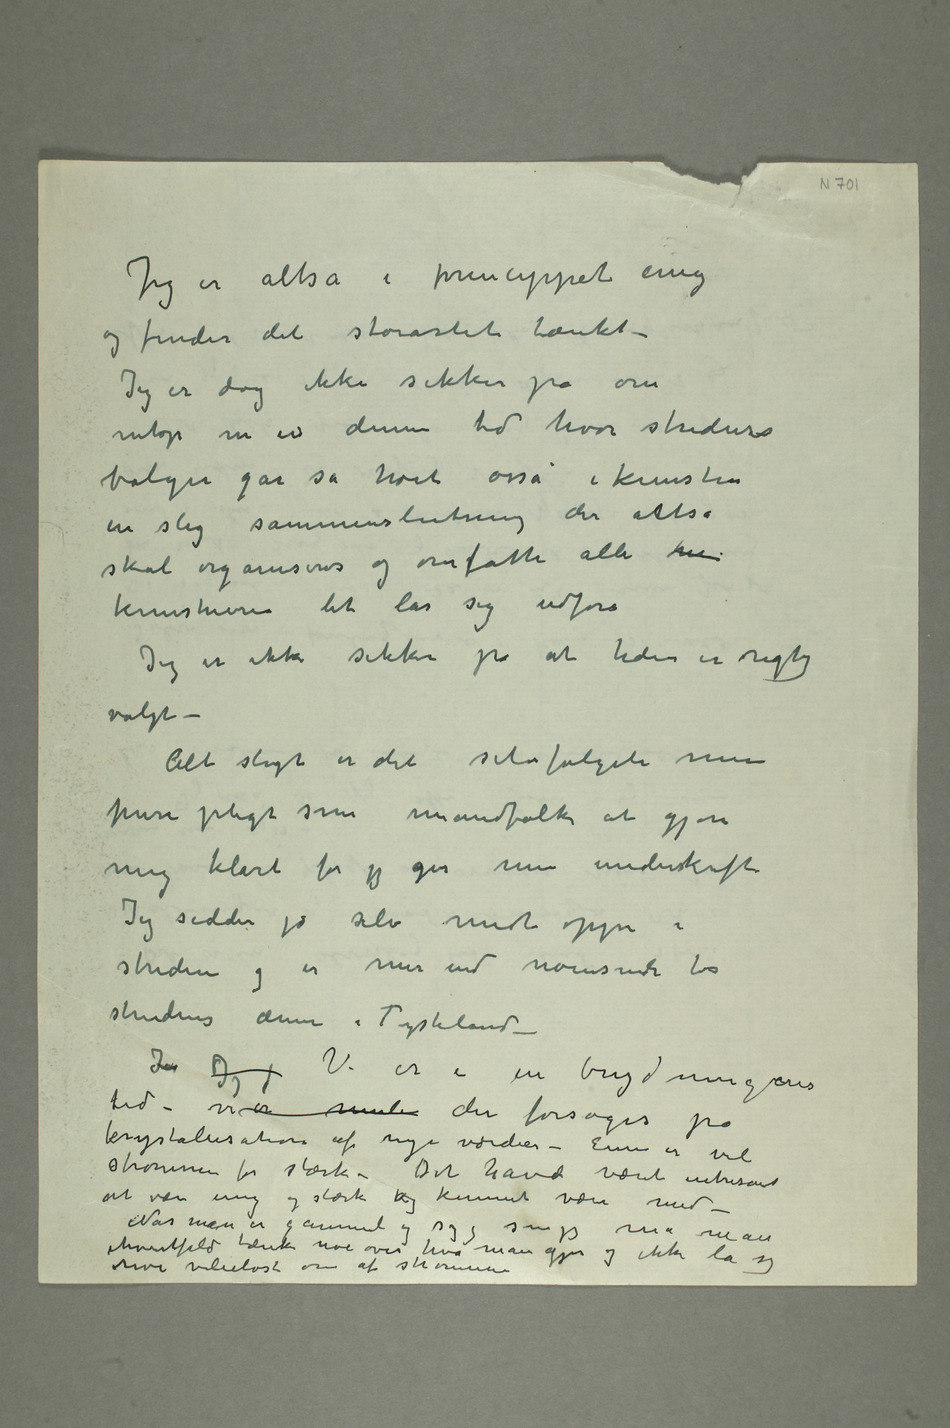 N 701
Jeg er altså i princippet enig
og finder det storartet tænkt –
Jeg er dog ikke sikker på om
netop nu i denne tid hvor stridens
bølger går så høit også i kunsten
en slig sammenslutning der altså
skal organiseres og omfatte alle
kunstnere let lar sig udføre
Jeg er ikke sikker på at tiden er rigtig
valgt –
Alt sligt er det selvfølgelig min
pure pligt som mandfolk at gjøre
mig klart før jeg gir min underskrift
Jeg sidder jo selv midt oppe i
striden og er mer end noensinde
stridens æmne i Tyskland –
Jeg j Vi er i en brydningens
tid – vi er der forsøges på
krystallisation af nye værdier – Ennu er vel
strømmen for stærk – Det havde været interesant
at være ung og stærk og kunnet være med –
Når man er gammel og syg som jeg må man
ihvertfald tænke noe over hva man gjør og ikke la sig
rive vilieløst om af strømmen